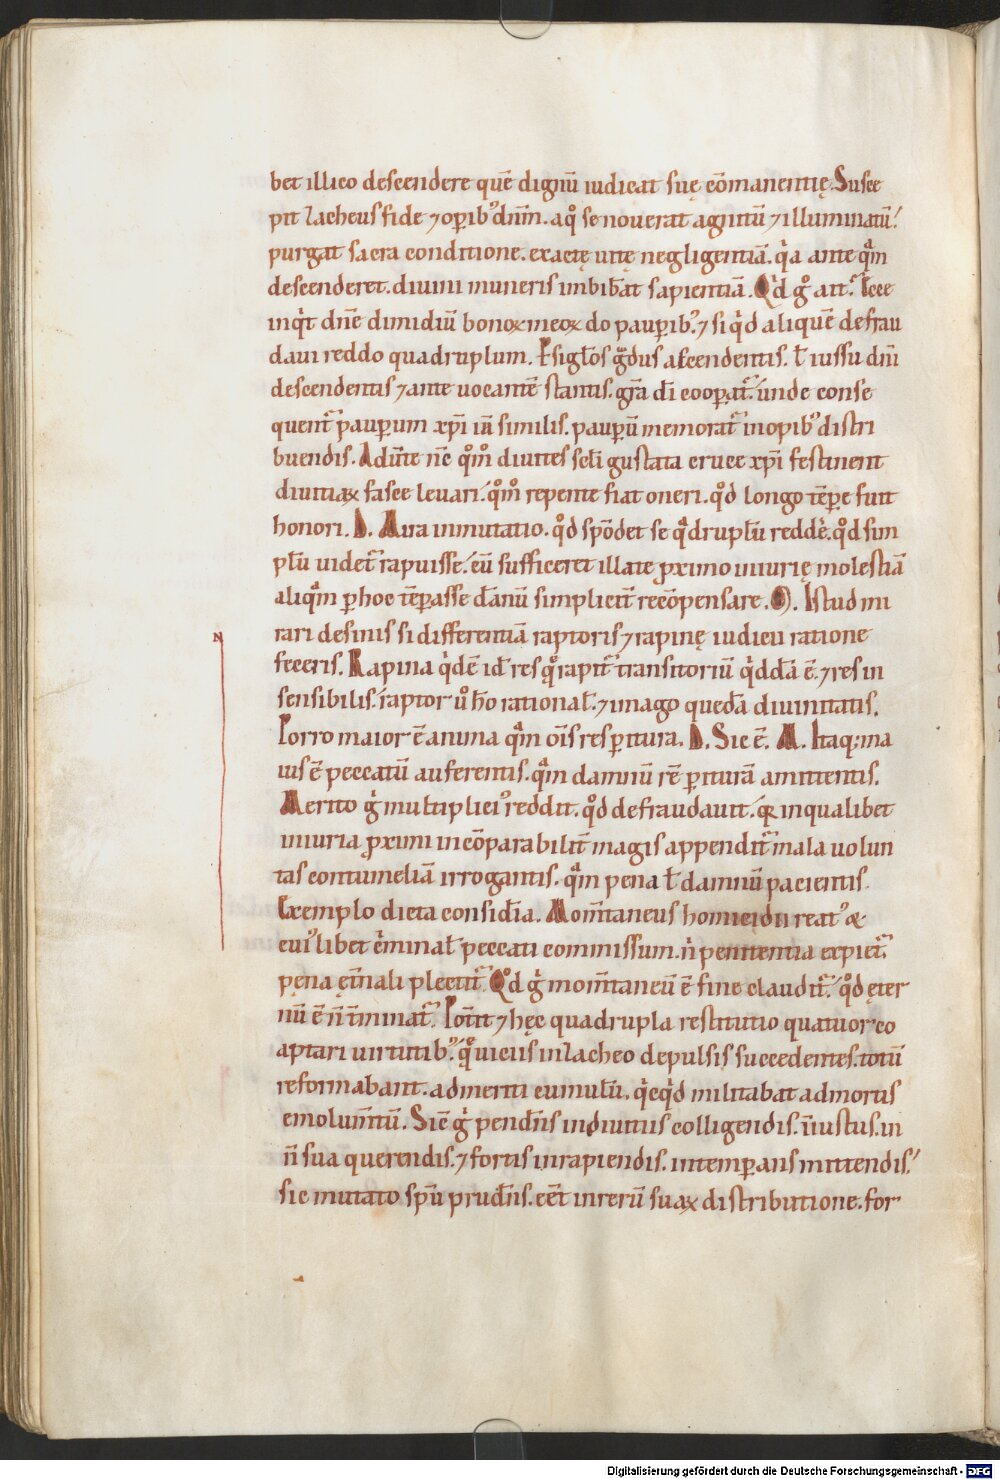 bet illico descendere quē dignū iudicat suę cōmanentię. Susce
pit Zacheus fide ⁊ opib᾽ dnm̄. a qͦ se nouerat agnitū ⁊ illuminatū!
purgat sacra conditione. exactę uitę negligentiā. qͥa ante qͣm
descenderet. diuini muneris imbib̄at sapientiā. Qͥd gͦ ait. Ecce
inqͥt dn̄e dimidiū bonoꝝ meoꝝ do paupib᾽. ⁊ si qͥd aliquē defrau
daui reddo quadruplum. P̄sigl̄os gͣdus ascendentis. ł iussu dn̄i
descendentis ⁊ ante uocantē stantis. gr̄a dī coopat᷑. unde conse
quent᷑ pauperum xp̄i iā similis. paupū memorat᷑ in opib᾽ distri
buendis. Aduīte nc̄ qͦm̊ diuites sc̄li gustata cruce xp̄i festinent
diuitiaꝝ fasce leuari. qͦm̊ repente fiat oneri. qͦd longo tēpe fuit
honori. D. Mira inmutatio. qͦd spōdet se qͣdruplū redde᷑. qͦd sim
plū uidet᷑ rapuisse. cū sufficeret illate ꝓximo iniurię molestiā
aliqͣm p hoc tēpasse dānū simplicit᷑ recōpensare. M. Istud mi
rari desinis si differentiā raptoris ⁊ rapinę iudicii ratione
N
feceris. Rapina qͥdē id̄ res qͣ rapit᷑ transitoriū qͥddā ē. ⁊ res in
sensibilis. raptor ů hō rational̄. ⁊ imago quedā diuinitatis.
Porro maior ē anima qͣm om̄is res pitura. D. Sic ē. M. Itaq; ma
ius ē peccatū auferentis. qͣm damnū rē piturā amittentis.
Merito gͥ multiplici᾽ reddit. qͦd defraudauit. qꝛ in qualibet
iniuria ꝓximi incōparabilit᷑ magis appendit᷑ mala uolun
tas contumeliā irrogantis. qͣm pena ł damnū pacientis.
Exemplo dicta consid̄ia. Mom̄taneus homicidii reat᾽ &
cui᾽libet cͥminal̄ peccati commissum. n̄ penitentia expiet᷑.
pęna ęt̄nali plectit᷑. Qͦd gͥ mom̄taneū ē fine claudit᷑. qͦd ęter
nū ē n̄ t̄minat᷑. Potit ⁊ hęc quadrupla restitutio quatuor co
aptari uirtutib᾽. qͣ uiciis in Zacheo depulsis succedentes. totū
reformabant. ad meriti cumulū. qͥcqͥd militabat ad mortis
emolum̄tū. Sic̄ gͥ pend̄ns in diuitiis colligendis. iniustus. in
n̄ sua querendis. ⁊ fortis in rapiendis. intempans mittendis!
sic mutato sp̄u prud̄ns. eēt in rerū suaꝝ distributione. for
Digitalisierung gefördert durch die Deutsche Forschungsgemeinschaft - DFG